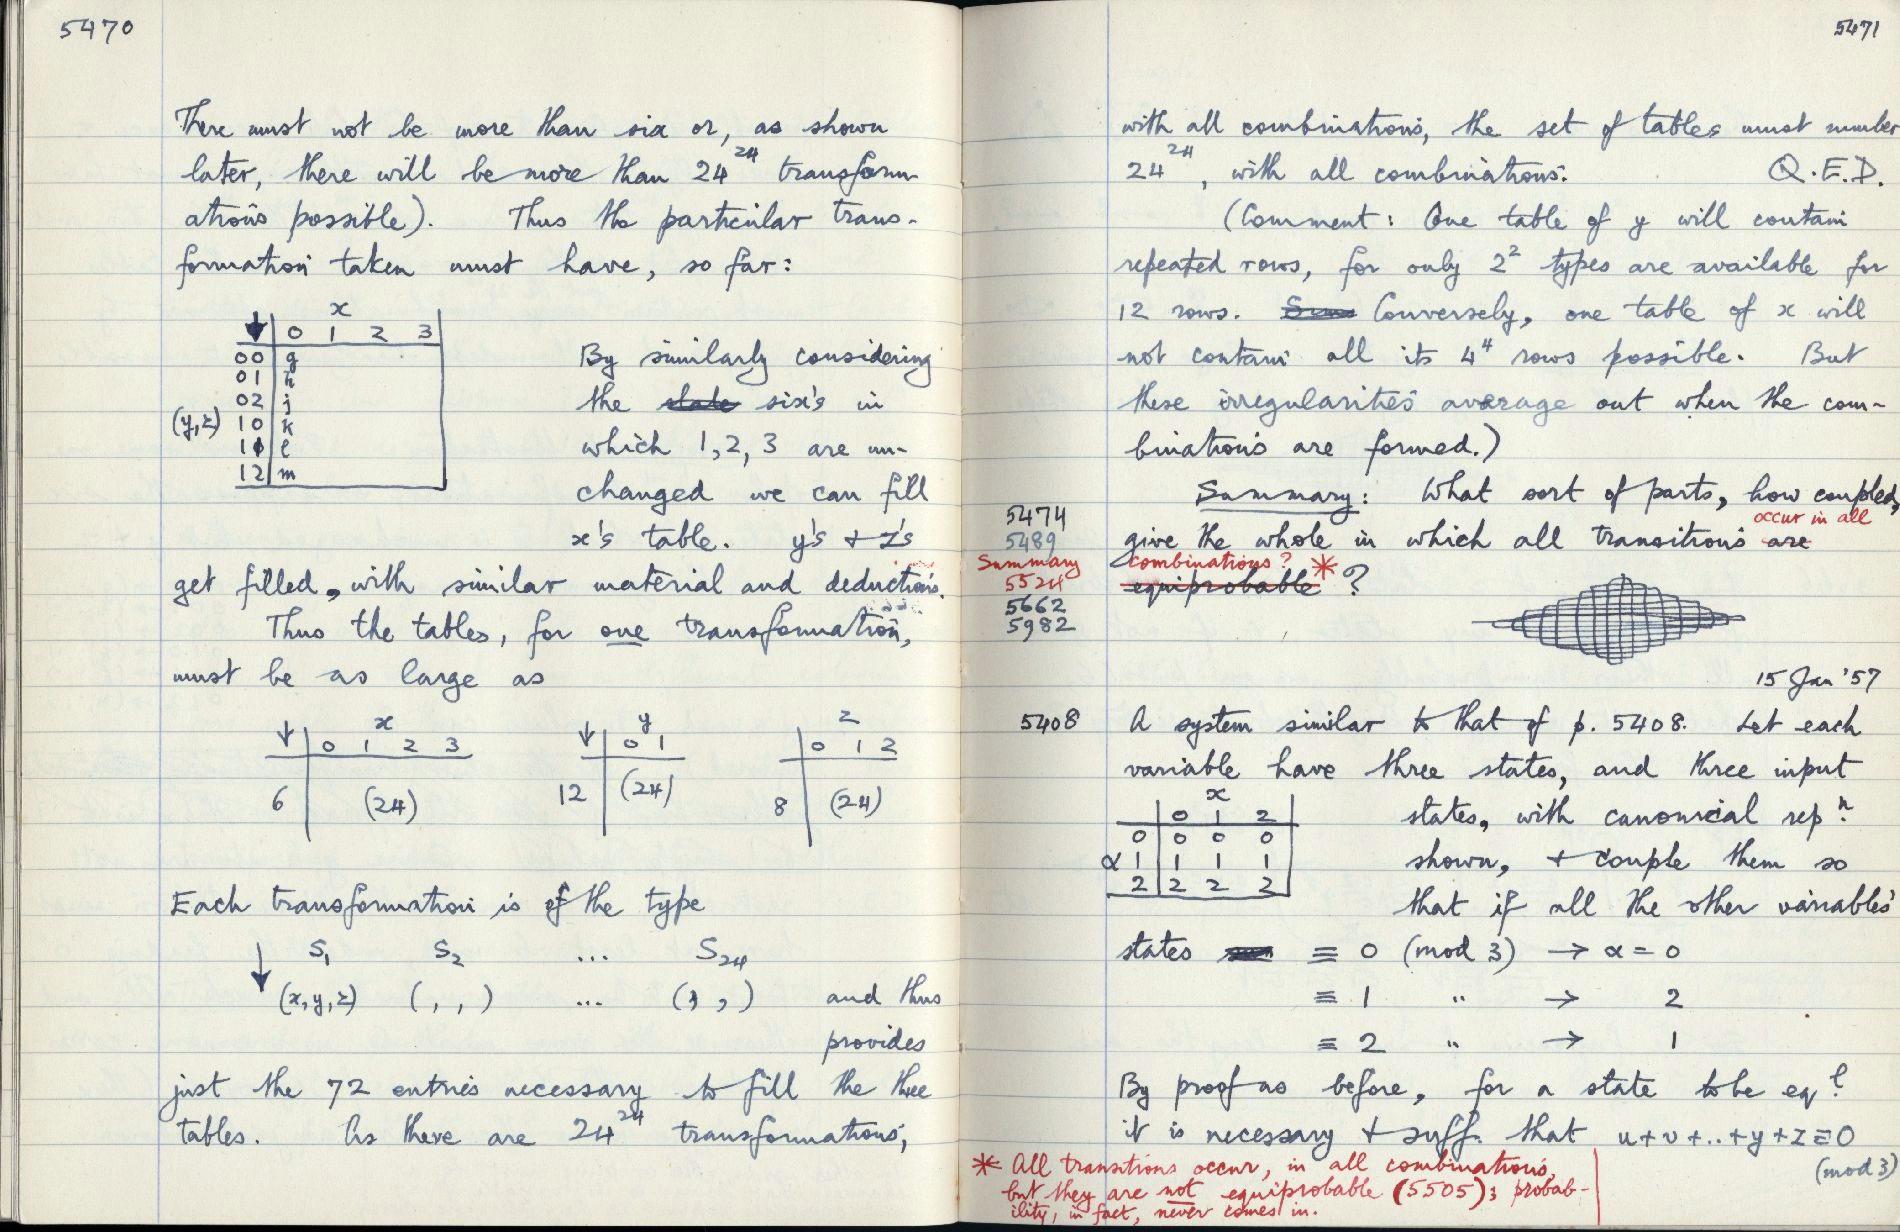 5470
There must not be more than six or, as shown
later, there will be more than 24^24 transform-
ations possible). Thus the particular trans-
formation taken must have, so far:
x
↓ 0 1 2 3
00 g
01 h
02 j
(y,z) 10 k
11 l
12 m
By similarly considering
the state six's in
which 1, 2, 3 are un-
changed we can fill
x's table. y's + z's
get filled, with similar material and deductions.
Thus the tables, for one transformation,
must be as large as
x y z
↓ 0 1 2 3 ↓ 0 1 0 1 2
6 (24) 12 (24) 8 (24)
Each transformation is of the type
↓ S1 S2 ... S24
(x,y,z) ( , , ) ... ( , , ) and thus
provides
just the 72 entries necessary to fill the three
tables. As there are 24^24 transformations,
5471
with all combinations, the set of tables must number
24^24, with all combinations. Q.E.D.
(Comment: One table of y will contain
repeated rows, for only 2^2 types are available for
12 rows. Conversely, one table of x will
not contain all its 4^4 rows possible. But
these irregularities average out when the com-
binations are formed.)
Summary: What sort of parts, how coupled,
5474
occur in all
give the whole in which all transitions are
5489
Summary
combinations? *
equiprobable ?
5524
5662
5982
15 Jan '57
5408 A system similar to that of p. 5408. Let each
variable have three states, and three input
x
0 1 2
0 0 0 0
α 1 1 1 1
2 2 2 2
states, with canonical rep^n.
shown, + couple them so
that if all the other variables'
states ≡ 0 (mod 3) → α = 0
≡ 1 " → 2
≡ 2 " → 1
By proof as before, for a state to be eq^l.
it is necessary + suff. that u+v+..+y+z ≡ 0
(mod 3)
* All transitions occur, in all combinations,
but they are not equiprobable (5505); probab-
ility, in fact, never comes in.